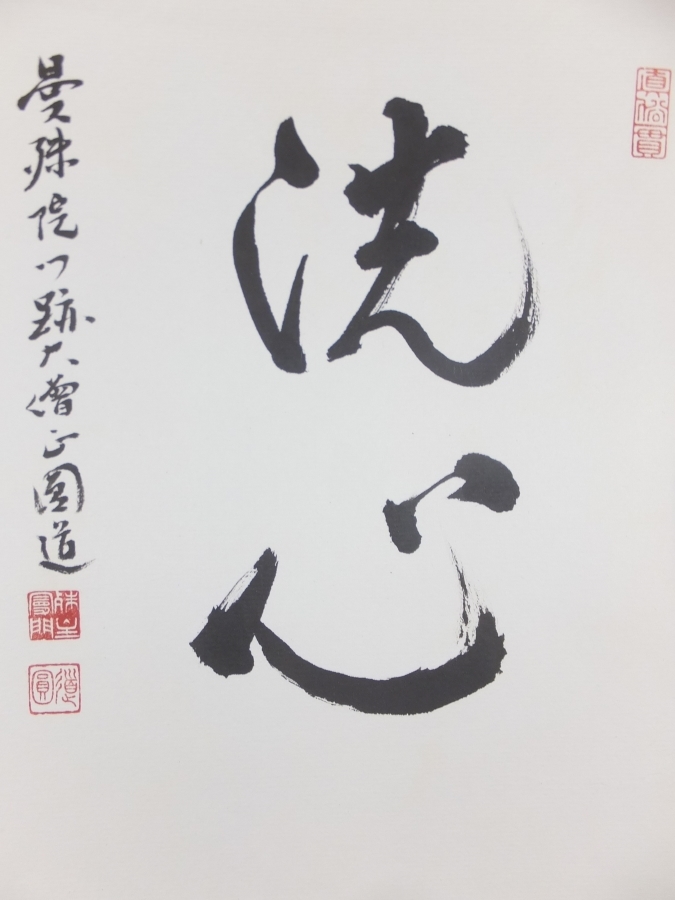 洗心
曼殊院門跡大僧正圓道
圓道